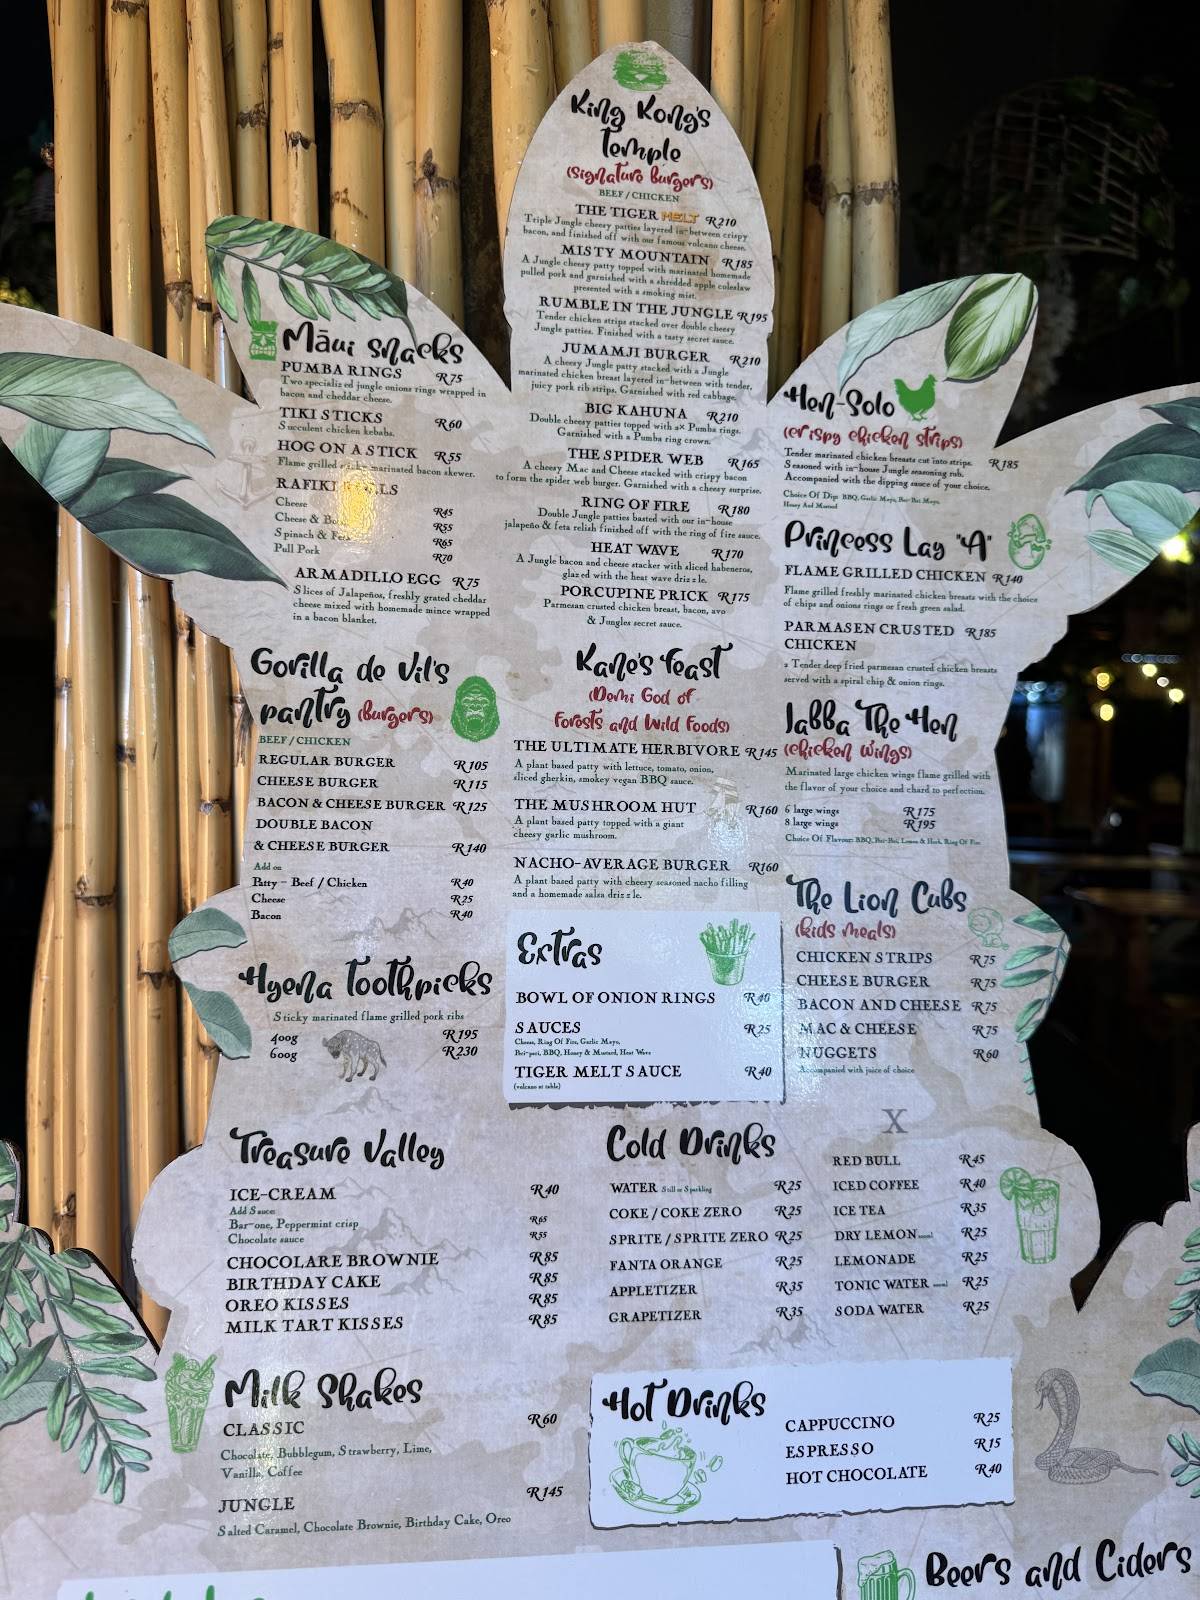 King Kong's
Temple
(Signature burgers)
BEEF / CHICKEN
THE TIGER MELT R210
Triple Jungle cheesy patties layered in-between crispy
bacon, and finished off with our famous volcano cheese.
MISTY MOUNTAIN R185
A Jungle cheesy patty topped with marinated homemade
pulled pork and garnished with a shredded apple coleslaw
presented with a smoking mist.
RUMBLE IN THE JUNGLE R195
Tender chicken strips stacked over double cheesy
Jungle patties. Finished with a tasty secret sauce.
JUMAMJI BURGER R210
A cheesy Jungle patty stacked with a Jungle
marinated chicken breast layered in-between with tender,
juicy pork rib strips. Garnished with red cabbage.
BIG KAHUNA R210
Double cheesy patties topped with 2x Pumba rings.
Garnished with a Pumba ring crown.
THE SPIDER WEB R165
A cheesy Mac and Cheese stacked with crispy bacon
to form the spider web burger. Garnished with a cheesy surprise.
RING OF FIRE R180
Double Jungle patties basted with our in-house
jalapeño & feta relish finished off with the ring of fire sauce.
HEAT WAVE R170
A Jungle bacon and cheese stacker with sliced habeneros,
glazed with the heat wave drizzle.
PORCUPINE PRICK R175
Parmesan crusted chicken breast, bacon, avo
& Jungles secret sauce.
Māui snacks
PUMBA RINGS R75
Two specialized jungle onions rings wrapped in
bacon and cheddar cheese.
TIKI STICKS R60
Succulent chicken kebabs.
HOG ON A STICK R55
Flame grilled sticky marinated bacon skewer.
RAFIKI
Cheese R45
Cheese & R55
Spinach & Feta R65
Pull Pork R70
ARMADILLO EGG R75
Slices of Jalapeños, freshly grated cheddar
cheese mixed with homemade mince wrapped
in a bacon blanket.
Gorilla de Vil's
pantry (burgers)
BEEF / CHICKEN
REGULAR BURGER R105
CHEESE BURGER R115
BACON & CHEESE BURGER R125
DOUBLE BACON
& CHEESE BURGER R140
Add on
Patty - Beef / Chicken R40
Cheese R25
Bacon R40
Hyena Toothpicks
Sticky marinated flame grilled pork ribs
400g R195
600g R230
Kane's feast
(Demi God of
Forests and Wild Foods)
THE ULTIMATE HERBIVORE R145
A plant based patty with lettuce, tomato, onion,
sliced gherkin, smokey vegan BBQ sauce.
THE MUSHROOM HUT R160
A plant based patty topped with a giant
cheesy garlic mushroom.
NACHO-AVERAGE BURGER R160
A plant based patty with cheesy seasoned nacho filling
and a homemade salsa drizzle.
Extras
BOWL OF ONION RINGS R40
SAUCES R25
Cheese, Ring Of Fire, Garlic Mayo,
Peri-peri, BBQ, Honey & Mustard, Heat Wave
TIGER MELT SAUCE R40
(volcano at table)
Hen-Solo
(crispy chicken strips)
Tender marinated chicken breasts cut into strips. R185
Seasoned with in-house Jungle seasoning rub.
Accompanied with the dipping sauce of your choice.
Choice Of Dip: BBQ, Garlic Mayo, Peri-Peri Mayo,
Honey And Mustard
Princess Lay "A"
FLAME GRILLED CHICKEN R140
Flame grilled freshly marinated chicken breasts with the choice
of chips and onions rings or fresh green salad.
PARMASEN CRUSTED R185
CHICKEN
2 Tender deep fried parmesan crusted chicken breasts
served with a spiral chip & onion rings.
Jabba The Hen
(chicken wings)
Marinated large chicken wings flame grilled with
the flavor of your choice and chard to perfection.
6 large wings R175
8 large wings R195
Choice Of Flavour: BBQ, Peri-Peri, Lemon & Herb, Ring Of Fire
The Lion Cubs
(kids meals)
CHICKEN STRIPS R75
CHEESE BURGER R75
BACON AND CHEESE R75
MAC & CHEESE R75
NUGGETS R60
Accompanied with juice of choice
Treasure Valley
ICE-CREAM R40
Add Sauce:
Bar-one, Peppermint crisp R65
Chocolate sauce R55
CHOCOLARE BROWNIE R85
BIRTHDAY CAKE R85
OREO KISSES R85
MILK TART KISSES R85
Cold Drinks
WATER Still or Sparkling R25
COKE / COKE ZERO R25
SPRITE / SPRITE ZERO R25
FANTA ORANGE R25
APPLETIZER R35
GRAPETIZER R35
X
RED BULL R45
ICED COFFEE R40
ICE TEA R35
DRY LEMON R25
LEMONADE R25
TONIC WATER R25
SODA WATER R25
Milk Shakes
CLASSIC R60
Chocolate, Bubblegum, Strawberry, Lime,
Vanilla, Coffee
JUNGLE R145
Salted Caramel, Chocolate Brownie, Birthday Cake, Oreo
Hot Drinks
CAPPUCCINO R25
ESPRESSO R15
HOT CHOCOLATE R40
Beers and Ciders